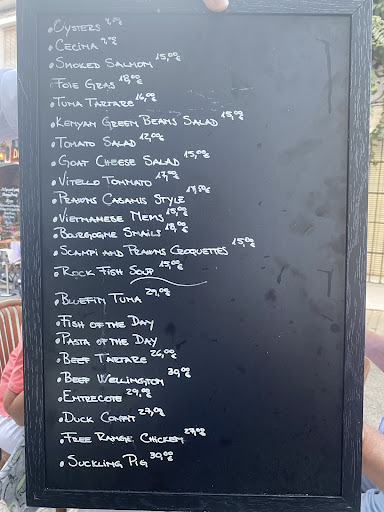 • Oysters
• Cecina
• Smoked Salmon 15,00€
• Foie Gras 18,00€
• Tuna Tartare 16,00€
• Kenyan Green Beans Salad 15,00€
• Tomato Salad 12,00€
• Goat Cheese Salad 15,00€
• Vitello Tonnato 17,00€
• Prawns Casanis Style
• Vietnamese Nems 15,00€
• Bourgogne Snails 18,00€
• Scampi and Prawns Croquettes 15,00€
• Rock Fish Soup 15,00€
• Bluefin Tuna 29,00€
• Fish of the Day
• Pasta of the Day
• Beef Tartare 26,00€
• Beef Wellington 39,00€
• Entrecote 29,00€
• Duck Confit 27,00€
• Free Range Chicken 27,00€
• Suckling Pig 39,00€